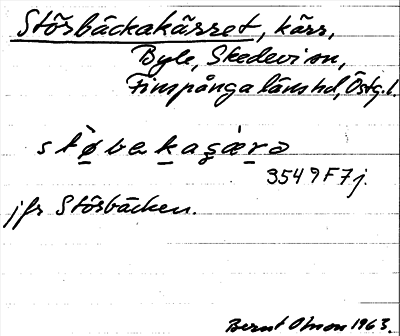 Störsbäckakärret, kärr,
Byle, Skedevi sn,
Finspånga länshd, Östg. l.
støbakagæra
3549 F7j.
jfr Störsbäcken.
Bernt Olsson 1963.